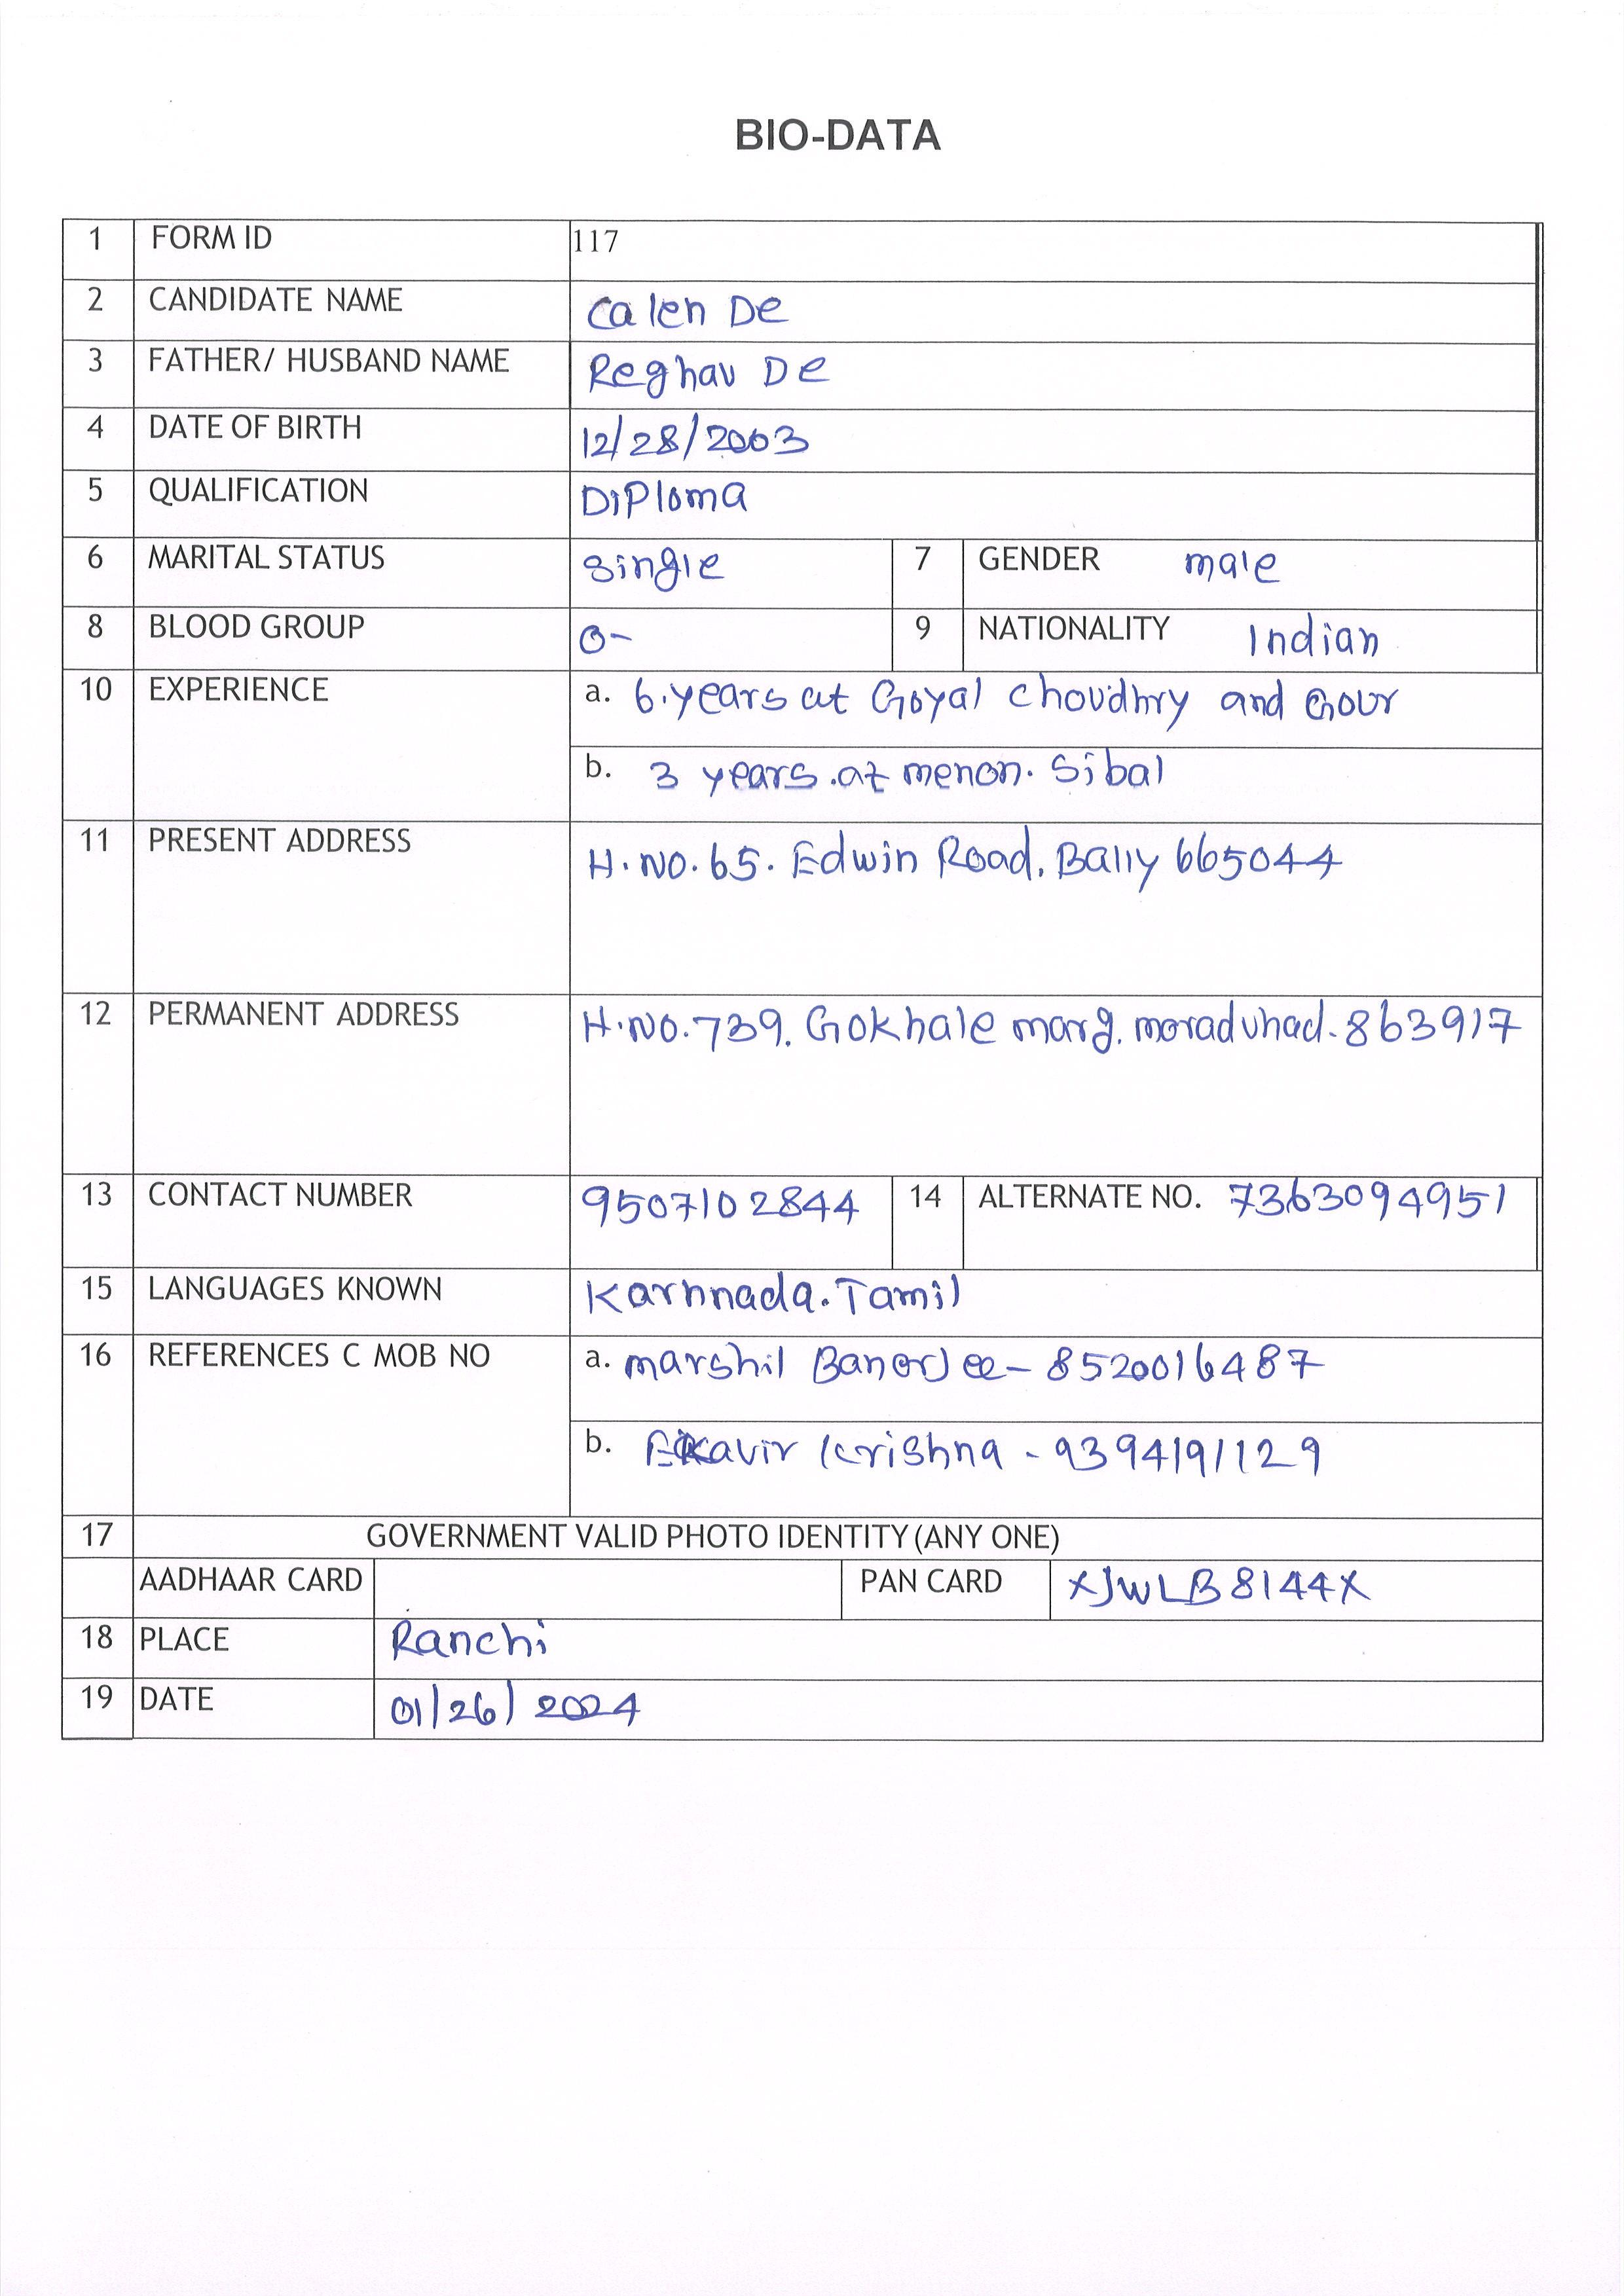 BIO-DATA
1 FORM ID 117
2 CANDIDATE NAME Calen De
3 FATHER/ HUSBAND NAME Reghav De
4 DATE OF BIRTH 12/28/2003
5 QUALIFICATION Diploma
6 MARITAL STATUS single 7 GENDER male
8 BLOOD GROUP O- 9 NATIONALITY Indian
10 EXPERIENCE a. 6.years at Goyal choudhry and Gour
b. 3 years.at menon. Sibal
11 PRESENT ADDRESS H.NO.65. Edwin Road. Bally 665044
12 PERMANENT ADDRESS H.NO.739. Gokhale marg. moraduhad-863917
13 CONTACT NUMBER 9507102844 14 ALTERNATE NO. 7363094951
15 LANGUAGES KNOWN Karnnada.Tamil
16 REFERENCES C MOB NO a. marshil Banerjee- 8520016487
b. Ekavir Krishna - 9394191129
17 GOVERNMENT VALID PHOTO IDENTITY (ANY ONE)
AADHAAR CARD PAN CARD XJWLB8144X
18 PLACE Ranchi
19 DATE 01/26/2024